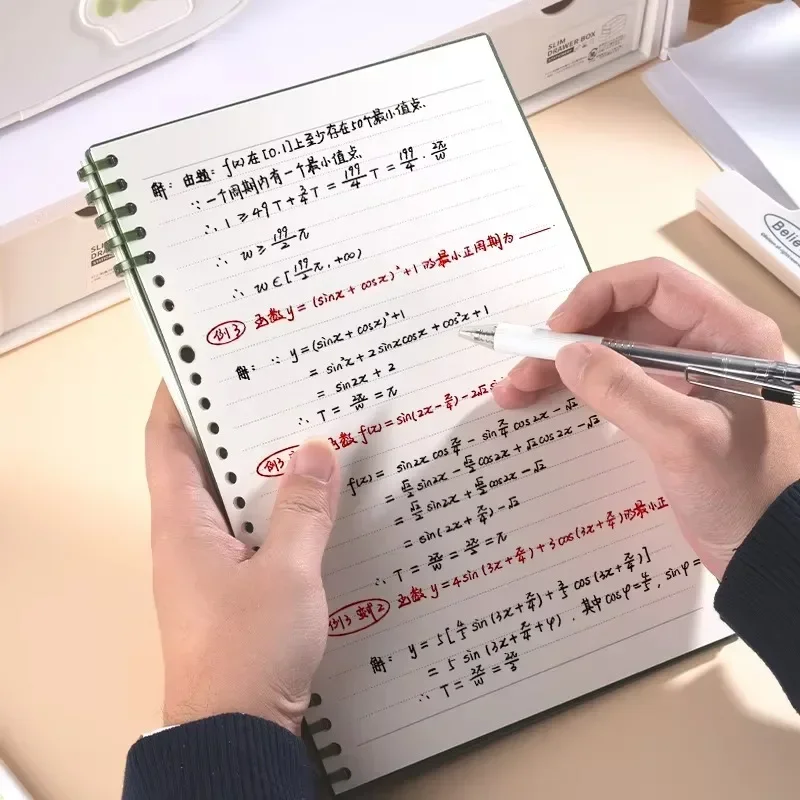 SLIM
DRAWER BOX
解：由题：f(x)在[0,1]上至少存在50个最小值点.
∵一个周期内有一个最小值点
∴ 1 ≥ 49T + 3/4 T = 199/4 T = 199/4 · 2π/w
∴ w ≥ 199/2 π
∴ w ∈ [199/2 π, +∞)
例3 函数y = (sinx + cosx)² + 1 的最小正周期为
解：∵ y = (sinx + cosx)² + 1
= sin²x + 2sinxcosx + cos²x + 1
= sin2x + 2
∴ T = 2π/w = π
例3 函数 f(x) = sin(2x - π/4) - 2√2 si
f(x) = sin2x cos π/4 - sin π/4 cos2x - √2
= √2/2 sin2x - √2/2 cos2x + √2 cos2x - √2
= √2/2 sin2x + √2/2 cos2x - √2
= sin(2x + π/4) - √2
∴ T = 2π/w = 2π/2 = π
例3 变式2 函数 y = 4sin(3x + π/4) + 3cos(3x + π/4) 的最小正
解：y = 5[4/5 sin(3x + π/4) + 3/5 cos(3x + π/4)]
= 5 sin(3x + π/4 + φ), 其中cosφ = 4/5, sinφ =
∴ T = 2π/w = 2π/3
Belie